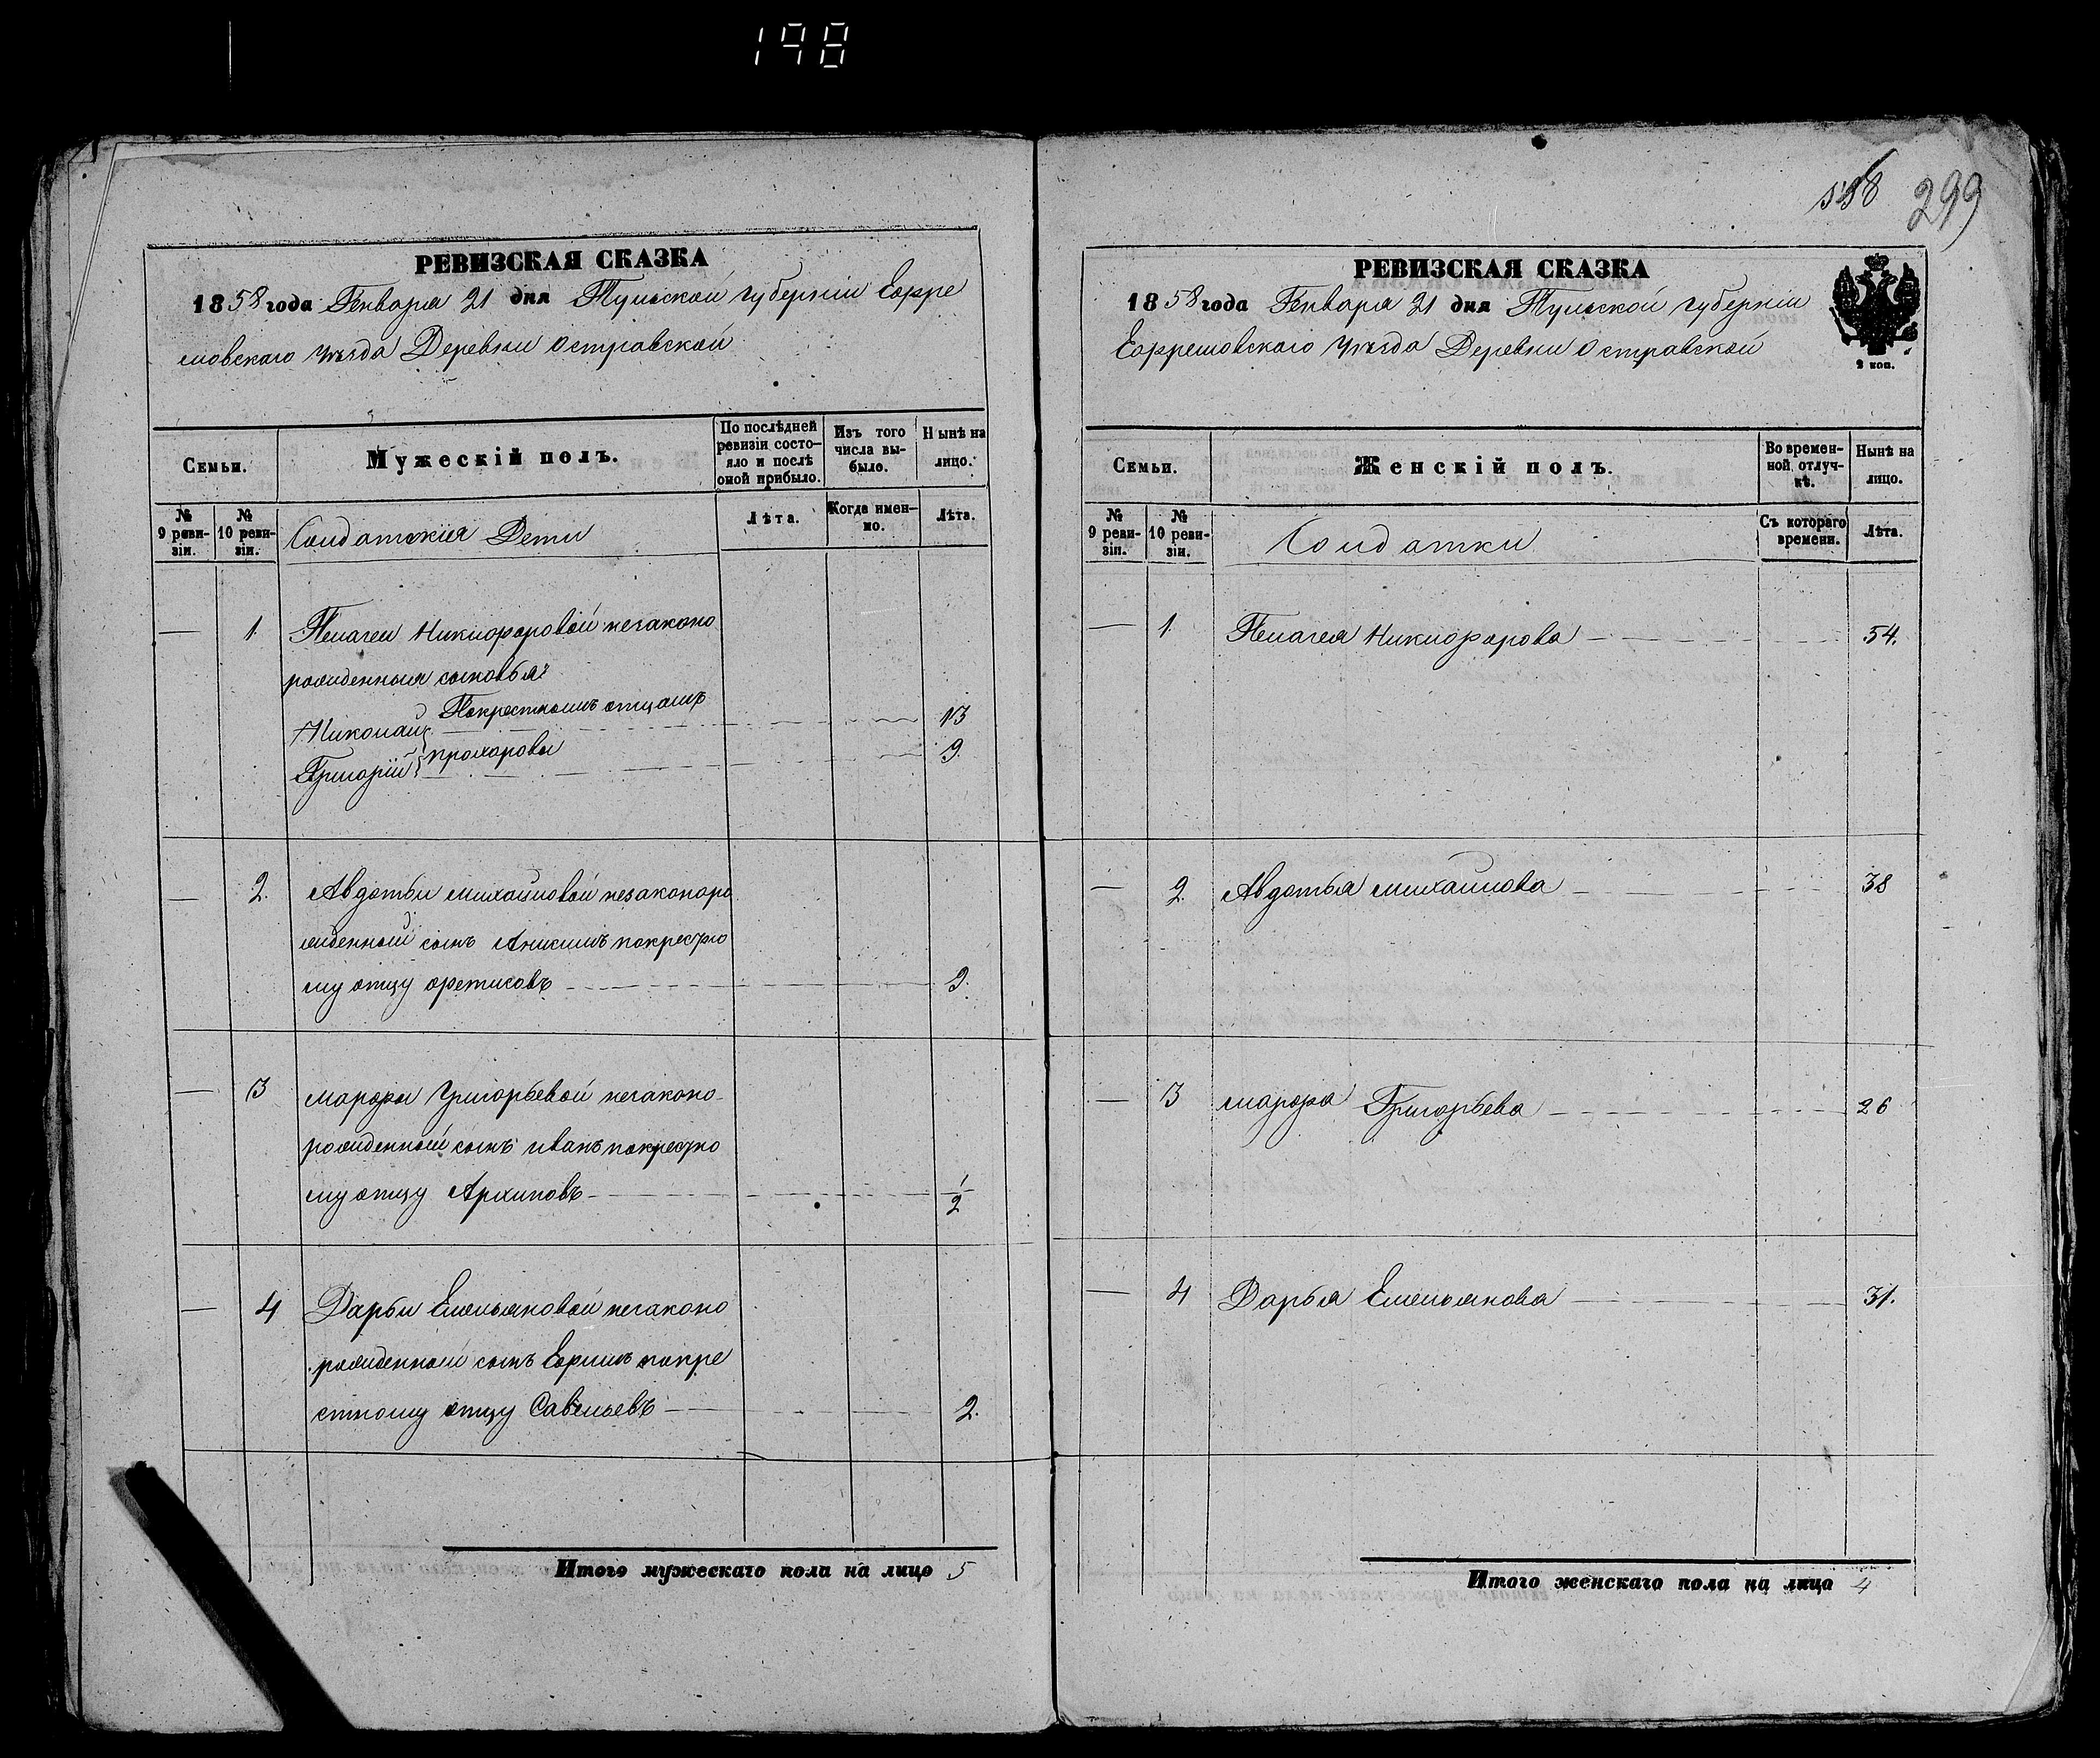 198
598 299
РЕВИЗСКАЯ СКАЗКА
1858 года Генваря 21 дня Тульской губернiи Ефре
мовскаго уѣзда Деревни Островской
Семьи.
Мужескiй полъ.
По послѣдней ревизiи состо-
яло и послѣ оной прибыло.
Изъ того числа вы-
было.
Нынѣ на лицо.
№ 9 реви-
зiи.
№ 10 реви-
зiи.
Солдатскiя Дети
Лѣта.
Когда имен-
но.
Лѣта.
— 1. Пелагеи Никифоровой незаконо
рожденныя сыновья
Николай Покрестнымъ отцамъ 13
Григорiй прохоровы 9.
— 2. Авдотьи михайловой незаконоро
жденный сынъ Аникимъ покрестно
му отцу 9.
— 3 марфы Григорьевой незаконо-
рожденный сынъ иванъ покрестно
му отцу Архиповъ 1/2
— 4 Дарьи Емельяновой незаконо
рожденный сынъ Ефимъ покре
стному отцу Савельевъ 2.
Итого мужескаго пола на лицо 5
РЕВИЗСКАЯ СКАЗКА
1858 года Генваря 21 дня Тульской губернiи
Ефремовскаго уѣзда Деревни Островской
2 коп.
Семьи.
Женскiй полъ.
Во времен-
ной отлуч-
кѣ.
Нынѣ на лицо.
№ 9 реви-
зiи.
№ 10 реви-
зiи.
Солдатки
Съ котораго времени.
Лѣта.
— 1. Пелагея Никифорова 54.
— 2. Авдотья михайлова 38
— 3 марфа Григорьева 26
— 4 Дарья Емельянова 31.
Итого женскаго пола на лицо 4